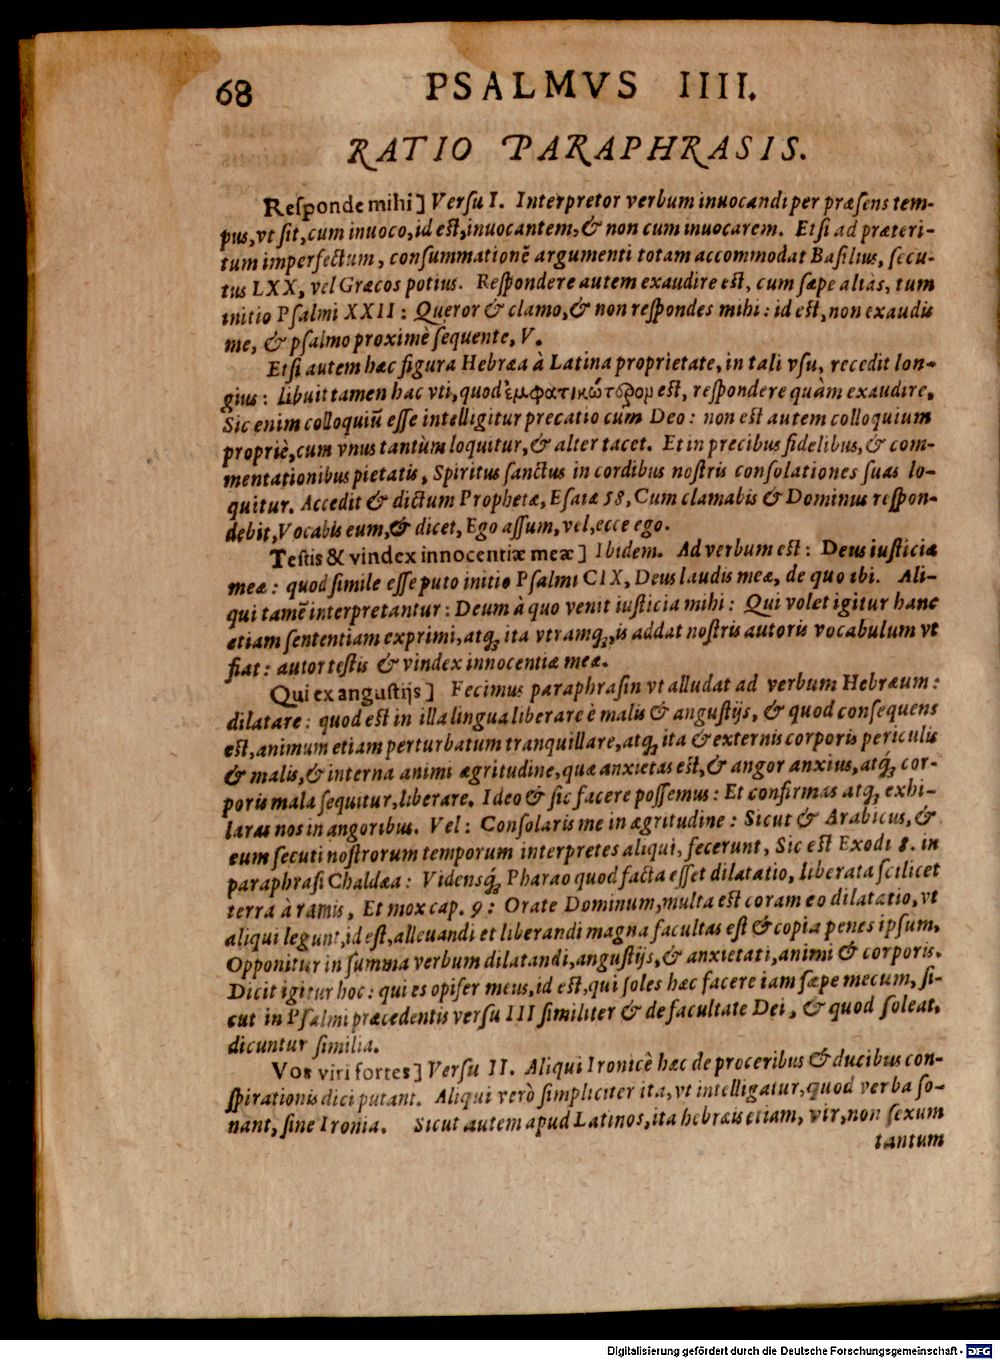 68
PSALMVS IIII.
RATIO PARAPHRASIS.
Reſponde mihi] Verſu I. Interpretor verbum inuocandi per præſens tem-
pus, vt ſit, cum inuoco, id est, inuocantem, & non cum inuocarem. Etſi ad præteri-
tum imperfectum, conſummationē argumenti totam accommodat Baſilius, ſecu-
tus LXX, vel Græcos potius. Reſpondere autem exaudire est, cum ſæpe aliàs, tum
initio Pſalmi XXII: Queror & clamo, & non reſpondes mihi: id est, non exaudis
me, & pſalmo proximè ſequente, V.
Etſi autem hæc figura Hebræa à Latina proprietate, in tali vſu, recedit lon-
gius: libuit tamen hac vti, quod ἐμφατικώτερομ est, reſpondere quàm exaudire.
Sic enim colloquiū eſſe intelligitur precatio cum Deo: non est autem colloquium
propriè, cum vnus tantùm loquitur, & alter tacet. Et in precibus fidelibus, & com-
mentationibus pietatis, Spiritus ſanctus in cordibus nostris conſolationes ſuas lo-
quitur. Accedit & dictum Prophetæ, Eſaiæ 58, Cum clamabis & Dominus reſpon-
debit, Vocabis eum, & dicet, Ego aſſum, vel, ecce ego.
Testis & vindex innocentiæ meæ] Ibidem. Ad verbum est: Deus iusticiæ
meæ: quod ſimile eſſe puto initio Pſalmi CIX, Deus laudis meæ, de quo ibi. Ali-
qui tamē interpretantur: Deum à quo venit iusticia mihi: Qui volet igitur hanc
etiam ſententiam exprimi, atq; ita vtramq;, is addat nostris autoris vocabulum vt
fiat: autor testis & vindex innocentiæ meæ.
Qui ex angustijs] Fecimus paraphraſin vt alludat ad verbum Hebræum:
dilatare: quod est in illa lingua liberare è malis & angustijs, & quod conſequens
est, animum etiam perturbatum tranquillare, atq; ita & externis corporis periculis
& malis, & interna animi ægritudine, quæ anxietas est, & angor anxius, atq́; cor-
poris mala ſequitur, liberare. Ideo & ſic facere poſſemus: Et confirmas atq; exhi-
laras nos in angoribus. Vel: Conſolaris me in ægritudine: Sicut & Arabicus, &
eum ſecuti nostrorum temporum interpretes aliqui, fecerunt, Sic est Exodi 8. in
paraphraſi Chaldæa: Vidensq́; Pharao quod facta eſſet dilatatio, liberata ſcilicet
terra à ranis, Et mox cap. 9: Orate Dominum, multa est coram eo dilatatio, vt
aliqui legunt, id est, alleuandi et liberandi magna facultas est & copia penes ipſum.
Opponitur in ſumma verbum dilatandi, angustijs, & anxietati, animi & corporis.
Dicit igitur hoc: qui es opifer meus, id est, qui ſoles hæc facere iam ſæpe mecum, ſi-
cut in Pſalmi præcedentis verſu III ſimiliter & de facultate Dei, & quod ſoleat,
dicuntur ſimilia.
Vos viri fortes] Verſu II. Aliqui Ironicè hæc de proceribus & ducibus con-
ſpirationis dici putant. Aliqui verò ſimpliciter ita, vt intelligatur, quod verba ſo-
nant, ſine Ironia. Sicut autem apud Latinos, ita hebræis etiam, vir, non ſexum
tantum
Digitalisierung gefördert durch die Deutsche Forschungsgemeinschaft - DFG